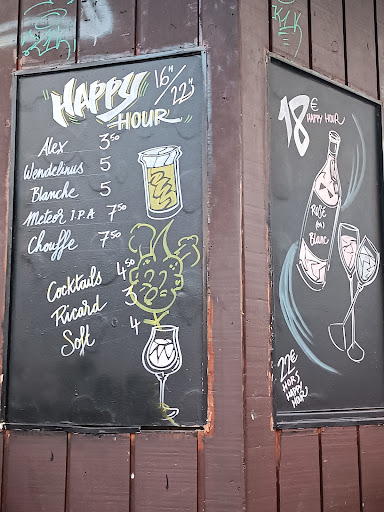 HAPPY HOUR 16H/22H
Alex 3.50
Wendelinus 5
Blanche 5
Meteor I.P.A 7.50
Chouffe 7.50
Cocktails 4.50
Ricard 3
Soft 4
18€
HAPPY HOUR
Rosé
ou
Blanc
22€
HORS
HAPPY
HOUR